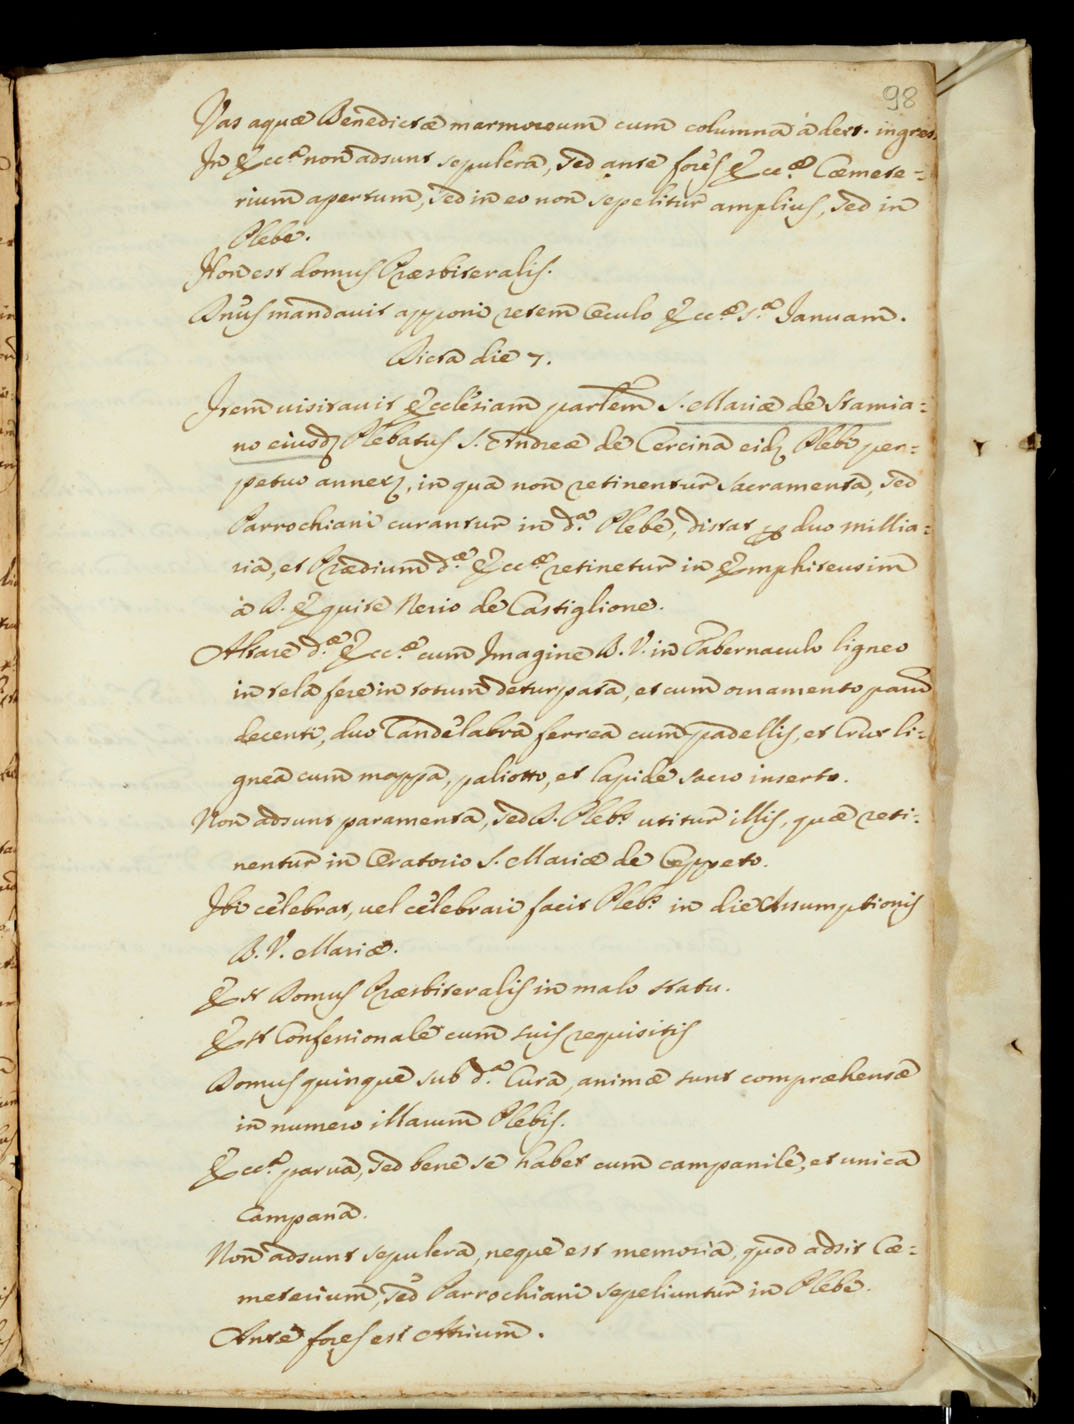 98
Vas aquæ Benedictæ marmoreum cum columna à dext. ingres.
In Ecc.ª non adsunt sepulcra, sed ante fores Ecc.æ Cœmete=
rium apertum, sed in eo non sepelitur amplius, sed in
Plebe.
Non est domus Præsbiteralis.
Dnus mandavit apponi retem Oculo Ecc.æ s.ª Ianuam.
Dicta die 7.
Item visitavit Ecclesiam partem S. Mariæ de Stamia=
no eiusdq Plebatus S. Andreæ de Cercina eidq Plebi per=
petuo annexq, in qua non retinentur Sacramenta, sed
Parrochiani curantur in d.ª Plebe, distat p duo millia=
ria, et Prædium d.æ Ecc.æ retinetur in Emphiteusim
à D. Equite Nerio de Castiglione.
Altare d.æ Ecc.æ cum Imagine B. V. in Tabernaculo ligneo
in tela fere in totum deturpata, et cum ornamento parum
decenti, duo Candelabra ferrea cum padellis, et Crux li=
gnea cum mappa, paliotto, et lapide sacro inserto.
Non adsunt paramenta, sed D. Pleb.s utitur illis, quæ reti=
nentur in Oratorio S. Mariæ de Ceppeto.
Ibi celebrat, vel celebrari facit Pleb.s in die Assumptionis
B. V. Mariæ.
Est Domus Præsbiteralis in malo statu.
Est Confessionale cum suis requisitis
Domus quinque sub d.ª Cura, animæ sunt compræhensæ
in numero illarum Plebis.
Ecc.ª parva, sed bene se habet cum campanile, et unica
Campana.
Non adsunt sepulcra, neque est memoria, quod adsit Cœ=
meterium, sed Parrochiani sepeliuntur in Plebe.
Ante fores est Atrium.